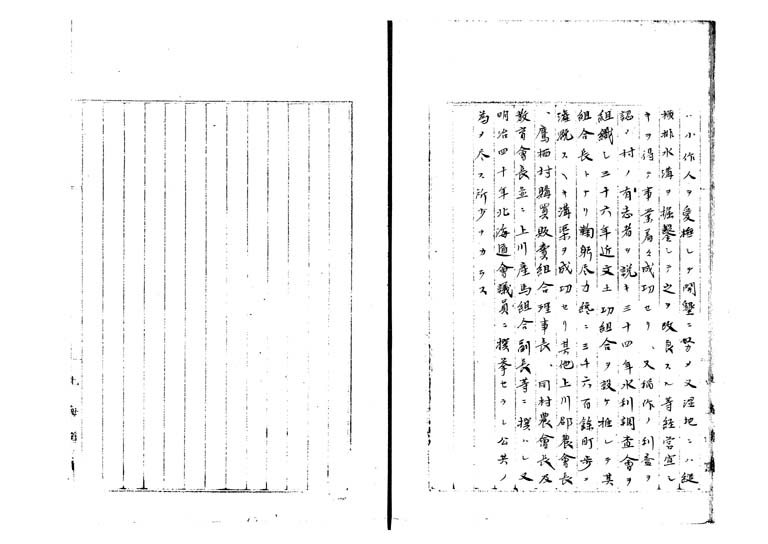 ハ小作人ヲ愛撫シテ開墾ニ努メ又湿地ニハ縦
横排水溝ヲ掘鑿シテ之ヲ改良スル等経営宜シ
キヲ得テ事業着々成功セリ、又稲作ノ利益ヲ
認メ村ノ有志者ヲ説キ三十四年水利調査會ヲ
組織シ三十六年近文土功組合ヲ設ケ推シテ其
組合長トナリ鞠躬尽力終ニ三千六百餘町歩ノ
灌漑スヘキ溝渠ヲ成功セリ其他上川郡農會長
、鷹栖村購買販賣組合理事長、同村農會長及
教育會長並ニ上川産馬組合副長等ニ撰ハレ又
明治四十年北海道會議員ニ撰挙セラレ公共ノ
為メ尽ス所少ナカラス
北海道